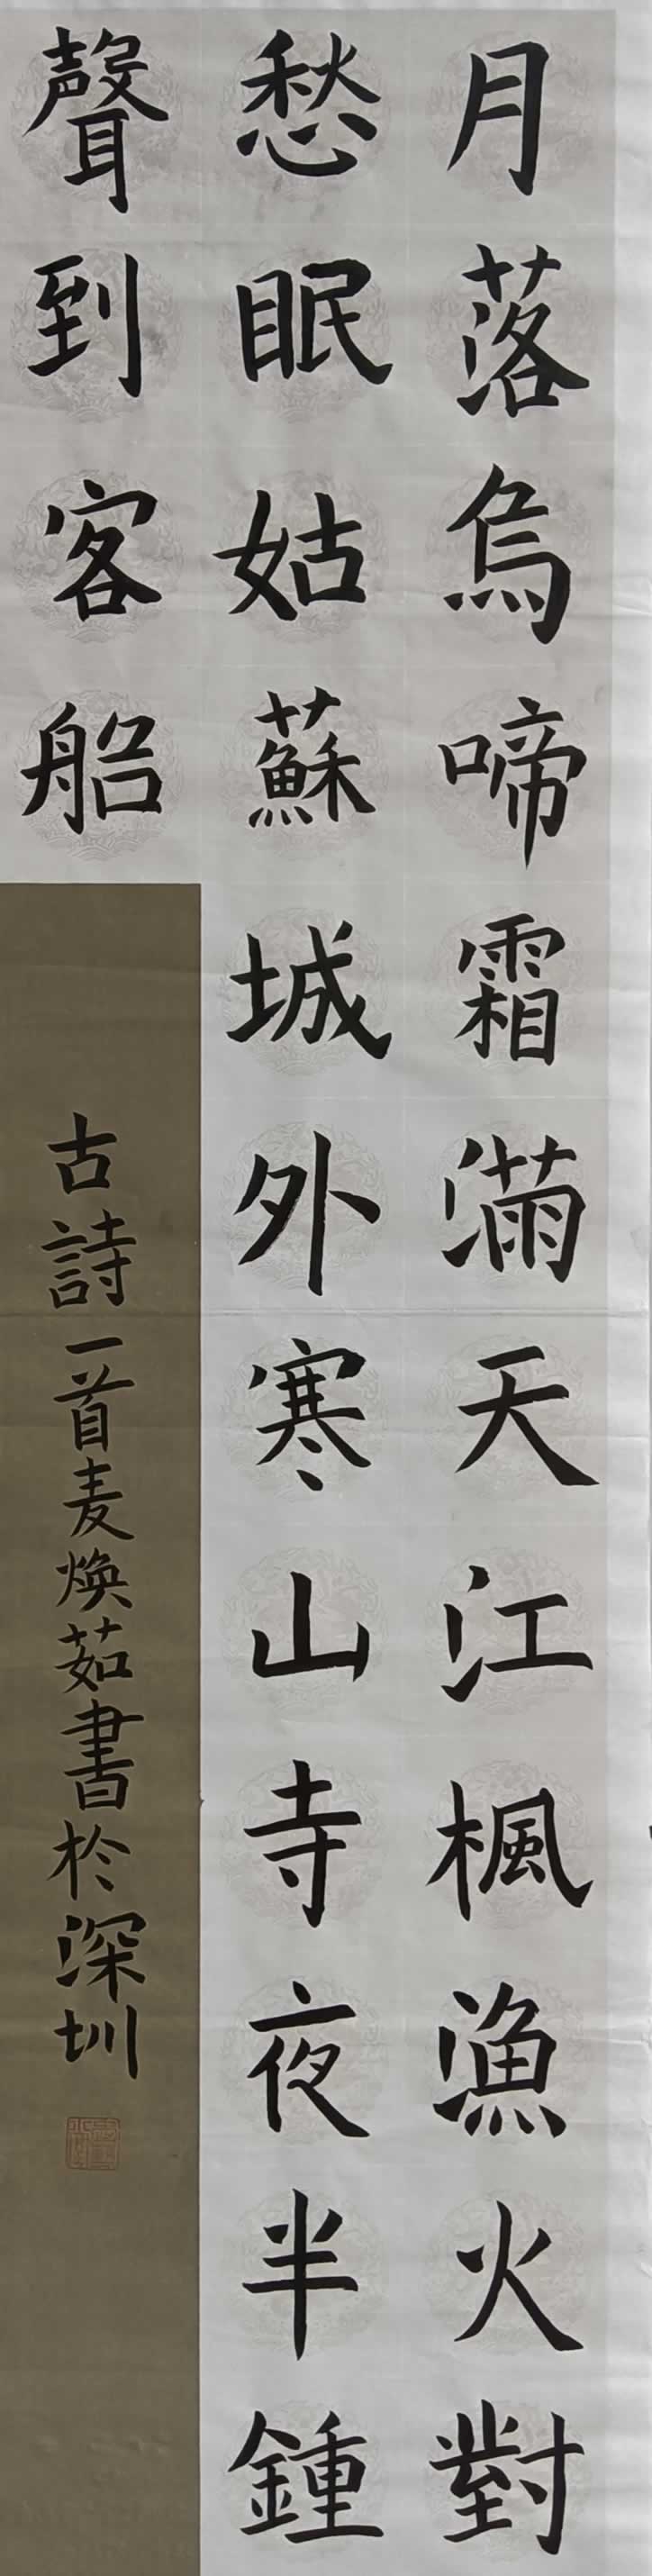 月落烏啼霜滿天江楓漁火對
愁眠姑蘇城外寒山寺夜半鍾
聲到客船
古詩一首麦焕茹書於深圳